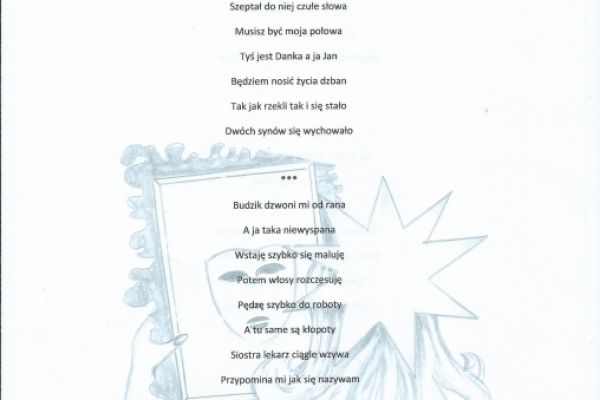 Szeptał do niej czułe słowa
Musisz być moja połowa
Tyś jest Danka a ja Jan
Będziem nosić życia dzban
Tak jak rzekli tak i się stało
Dwóch synów się wychowało
***
Budzik dzwoni mi od rana
A ja taka niewyspana
Wstaję szybko się maluję
Potem włosy rozczesuję
Pędzę szybko do roboty
A tu same są kłopoty
Siostra lekarz ciągle wzywa
Przypomina mi jak się nazywam